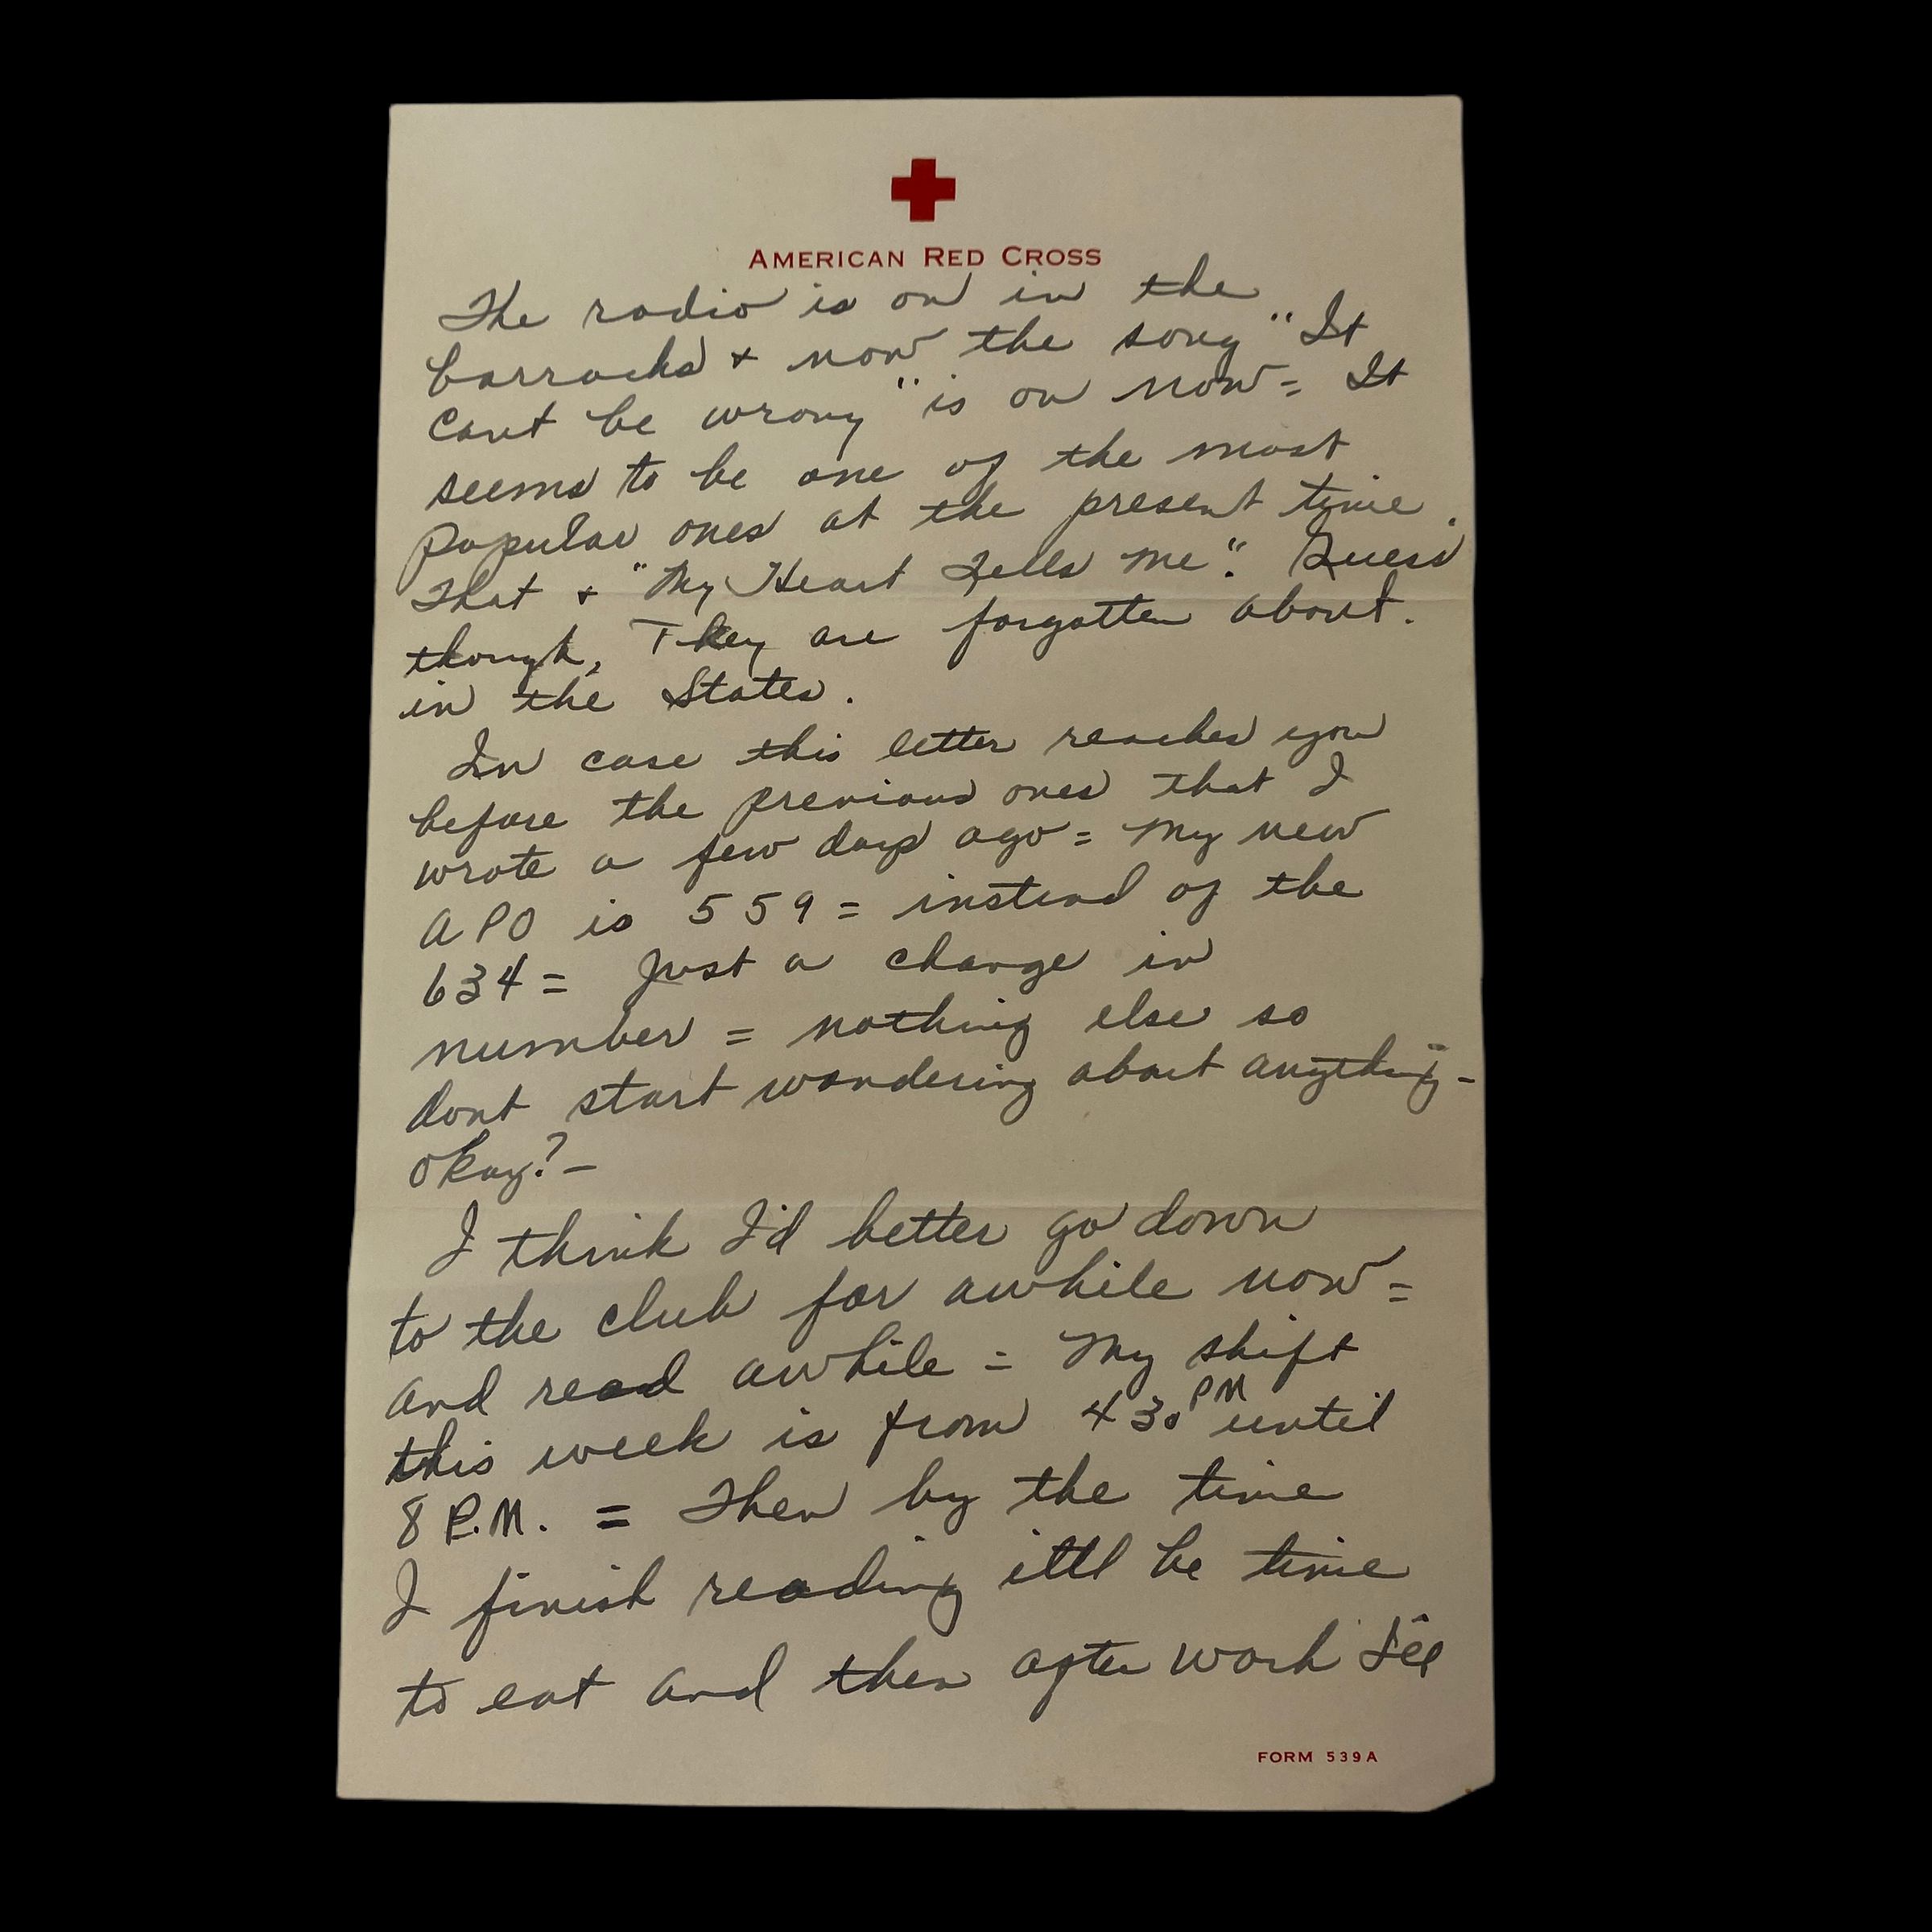 AMERICAN RED CROSS
The radio is on in the
barracks + now the song "It
cant be wrong" is on now = It
seems to be one of the most
popular ones at the present time.
That + "My Heart Tells Me". Guess
though, They are forgotten about.
in the States.
In case this letter reaches you
before the previous ones that I
wrote a few days ago = My new
APO is 559 = instead of the
634 = Just a change in
number = nothing else so
dont start wondering about anything -
okay? -
I think I'd better go down
to the club for awhile now =
and read awhile = My shift
this week is from 430 PM until
8 P.M. = Then by the time
I finish reading itll be time
to eat and then after work I'll
FORM 539A